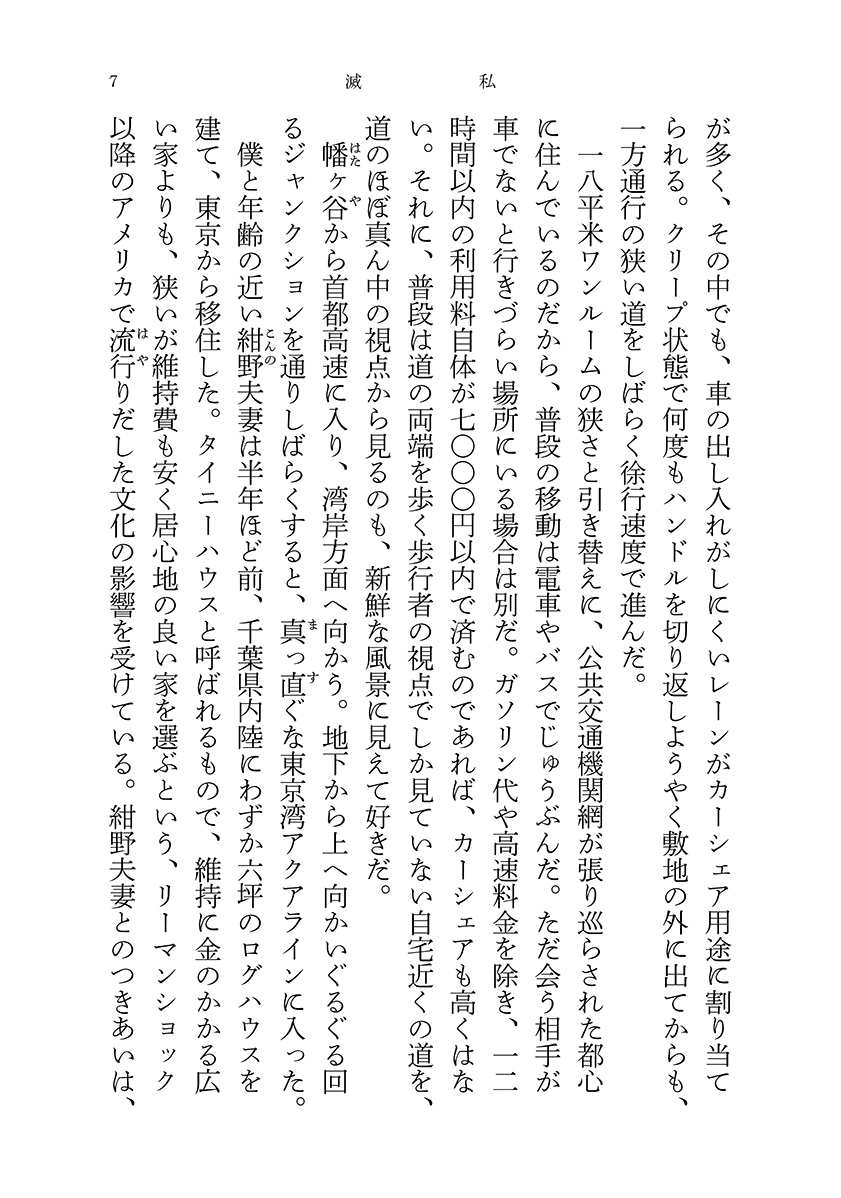 7
滅私
が多く、その中でも、車の出し入れがしにくいレーンがカーシェア用途に割り当て
られる。クリープ状態で何度もハンドルを切り返しようやく敷地の外に出てからも、
一方通行の狭い道をしばらく徐行速度で進んだ。
一八平米ワンルームの狭さと引き替えに、公共交通機関網が張り巡らされた都心
に住んでいるのだから、普段の移動は電車やバスでじゅうぶんだ。ただ会う相手が
車でないと行きづらい場所にいる場合は別だ。ガソリン代や高速料金を除き、一二
時間以内の利用料自体が七〇〇〇円以内で済むのであれば、カーシェアも高くはな
い。それに、普段は道の両端を歩く歩行者の視点でしか見ていない自宅近くの道を、
道のほぼ真ん中の視点から見るのも、新鮮な風景に見えて好きだ。
幡ヶ谷から首都高速に入り、湾岸方面へ向かう。地下から上へ向かいぐるぐる回
るジャンクションを通りしばらくすると、真っ直ぐな東京湾アクアラインに入った。
僕と年齢の近い紺野夫妻は半年ほど前、千葉県内陸にわずか六坪のログハウスを
建て、東京から移住した。タイニーハウスと呼ばれるもので、維持に金のかかる広
い家よりも、狭いが維持費も安く居心地の良い家を選ぶという、リーマンショック
以降のアメリカで流行りだした文化の影響を受けている。紺野夫妻とのつきあいは、